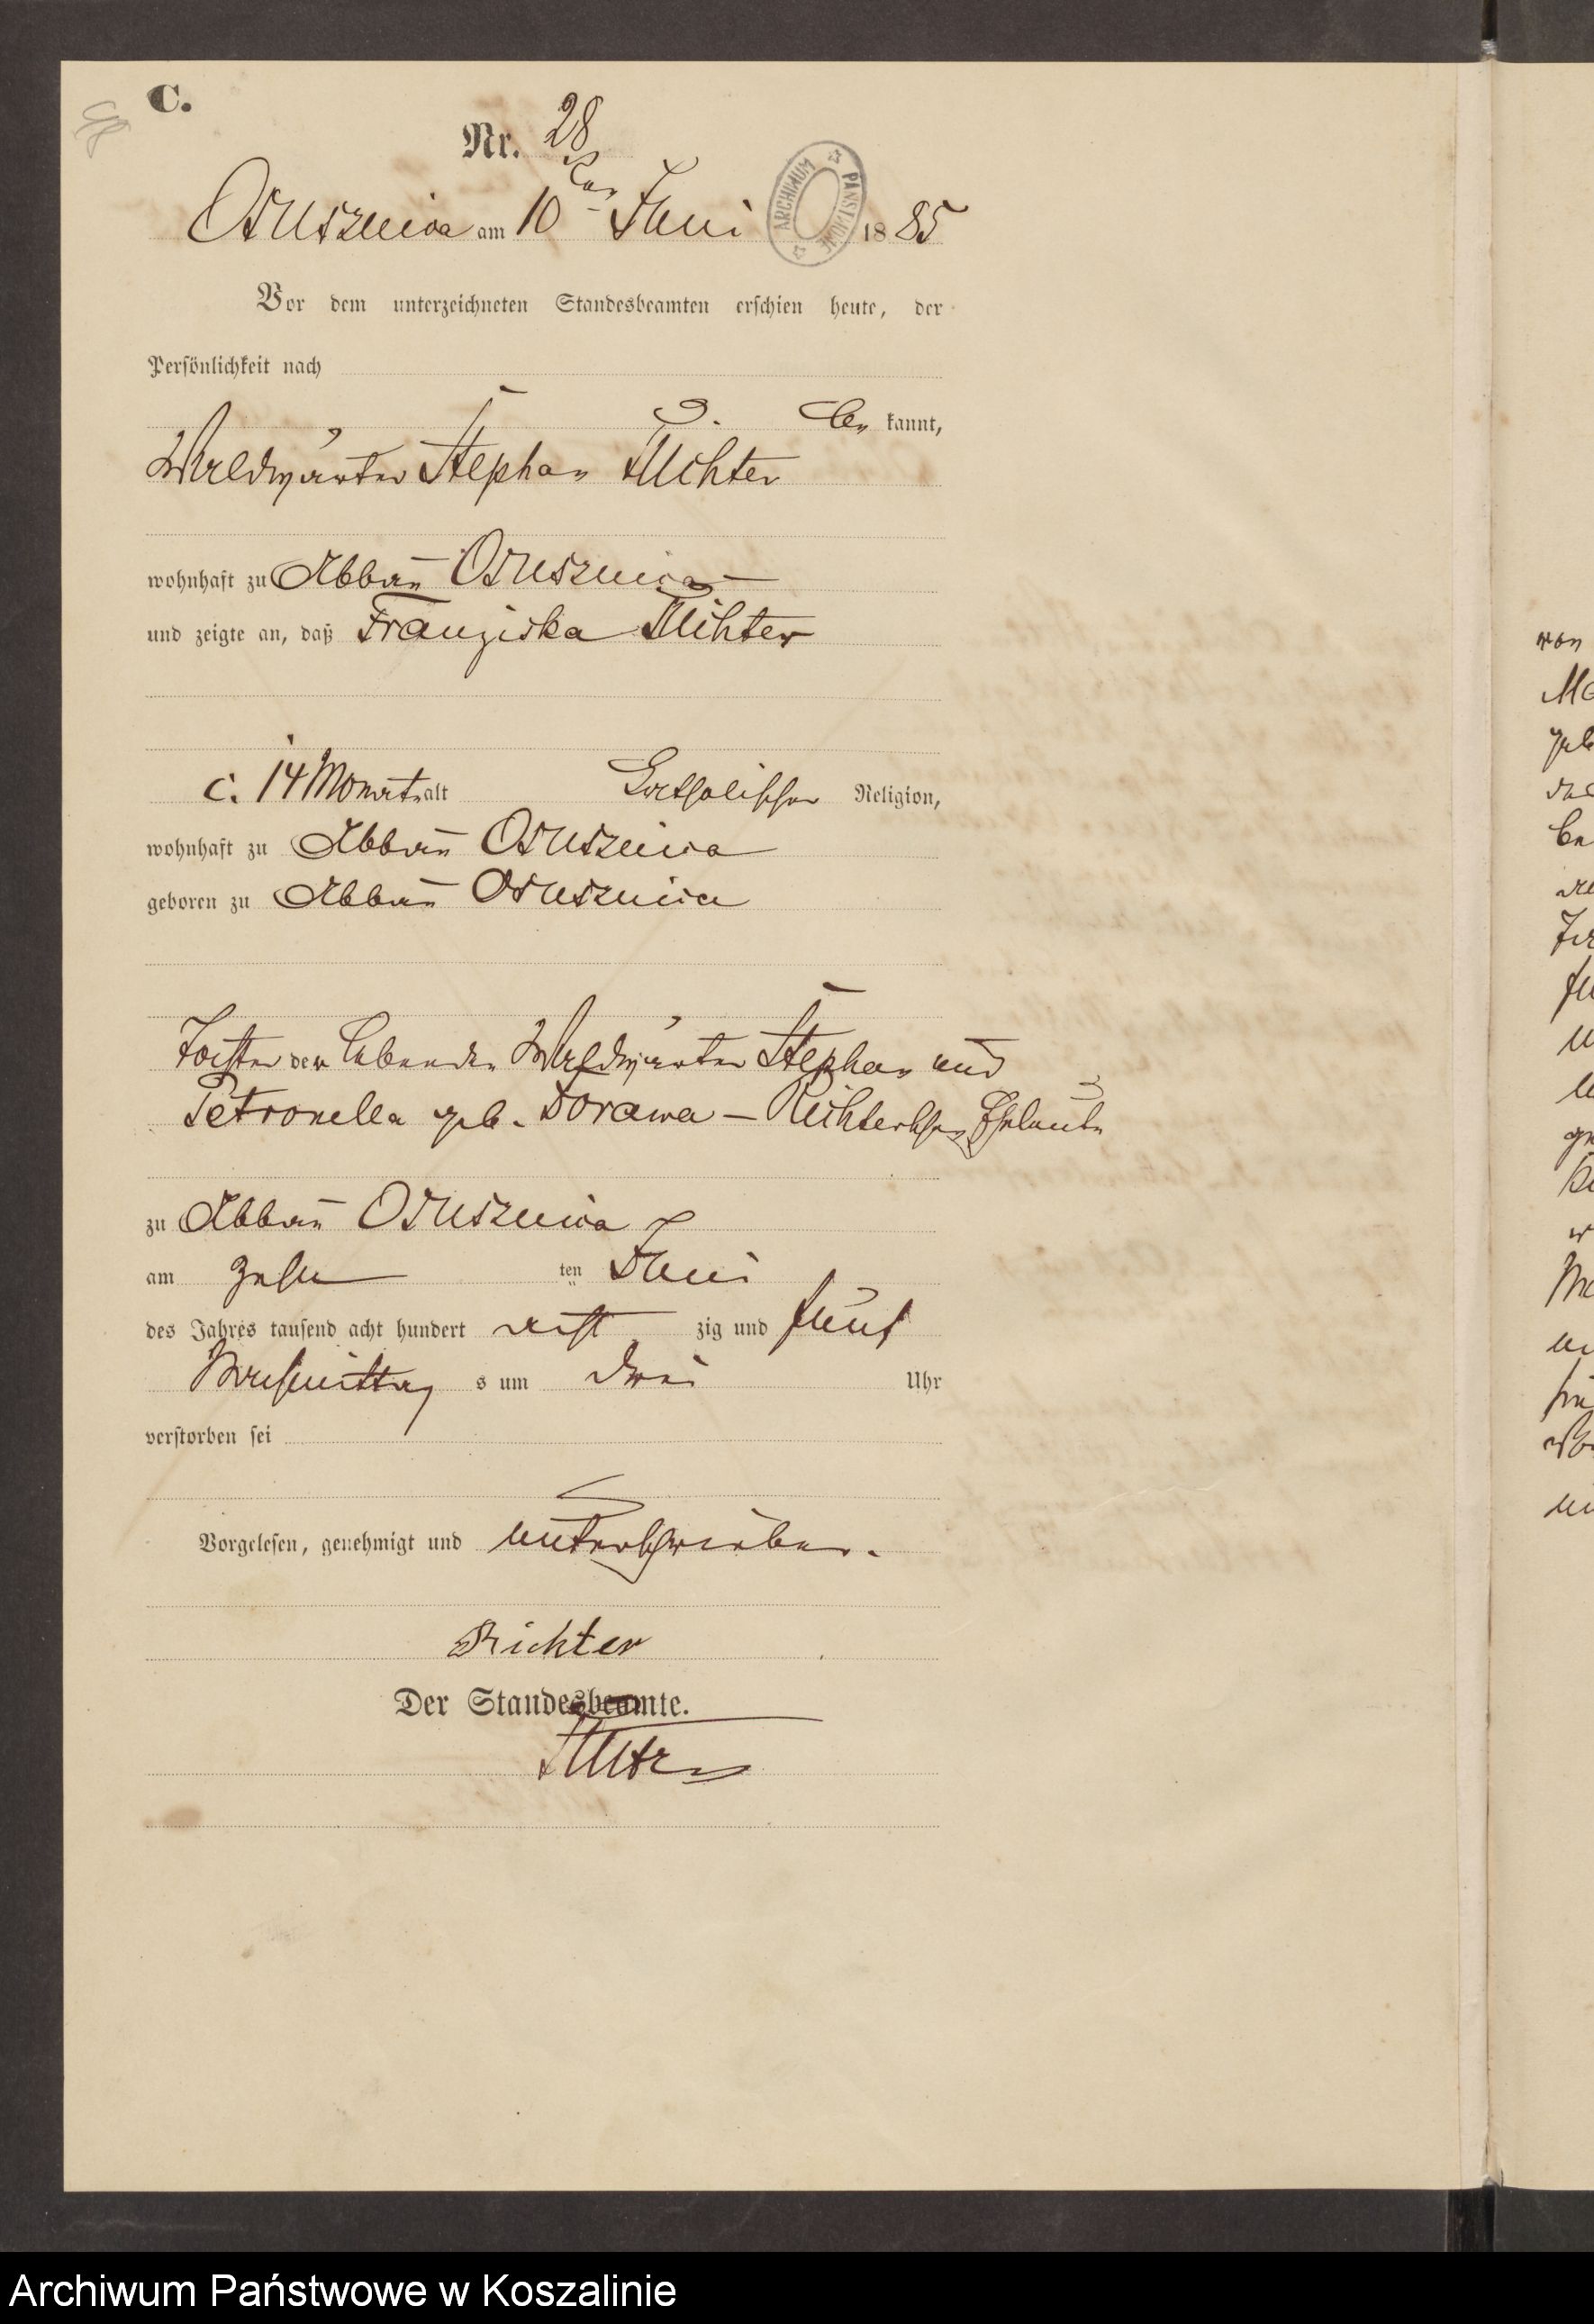 C.
Nr. 28
Ossusznica am 10ten Juni 1885
ARCHIWUM PAŃSTWOWE
Vor dem unterzeichneten Standesbeamten erschien heute, der
Persönlichkeit nach
be kannt,
Waldwärter Stephan Richter
wohnhaft zu Abbau Ossusznica
und zeigte an, daß Franziska Richter
c. 14 Monat alt katholischer Religion,
wohnhaft zu Abbau Ossusznica
geboren zu Abbau Ossusznica
Tochter der lebenden Waldwärter Stephan und
Petronella geb. Dorawa - Richterschen Eheleute
zu Abbau Ossusznica
am zehn ten Juni
des Jahres tausend acht hundert acht zig und fünf
Nachmittag s um drei Uhr
verstorben sei
Vorgelesen, genehmigt und unterschrieben.
Richter
Der Standesbeamte.
von
Archiwum Państwowe w Koszalinie